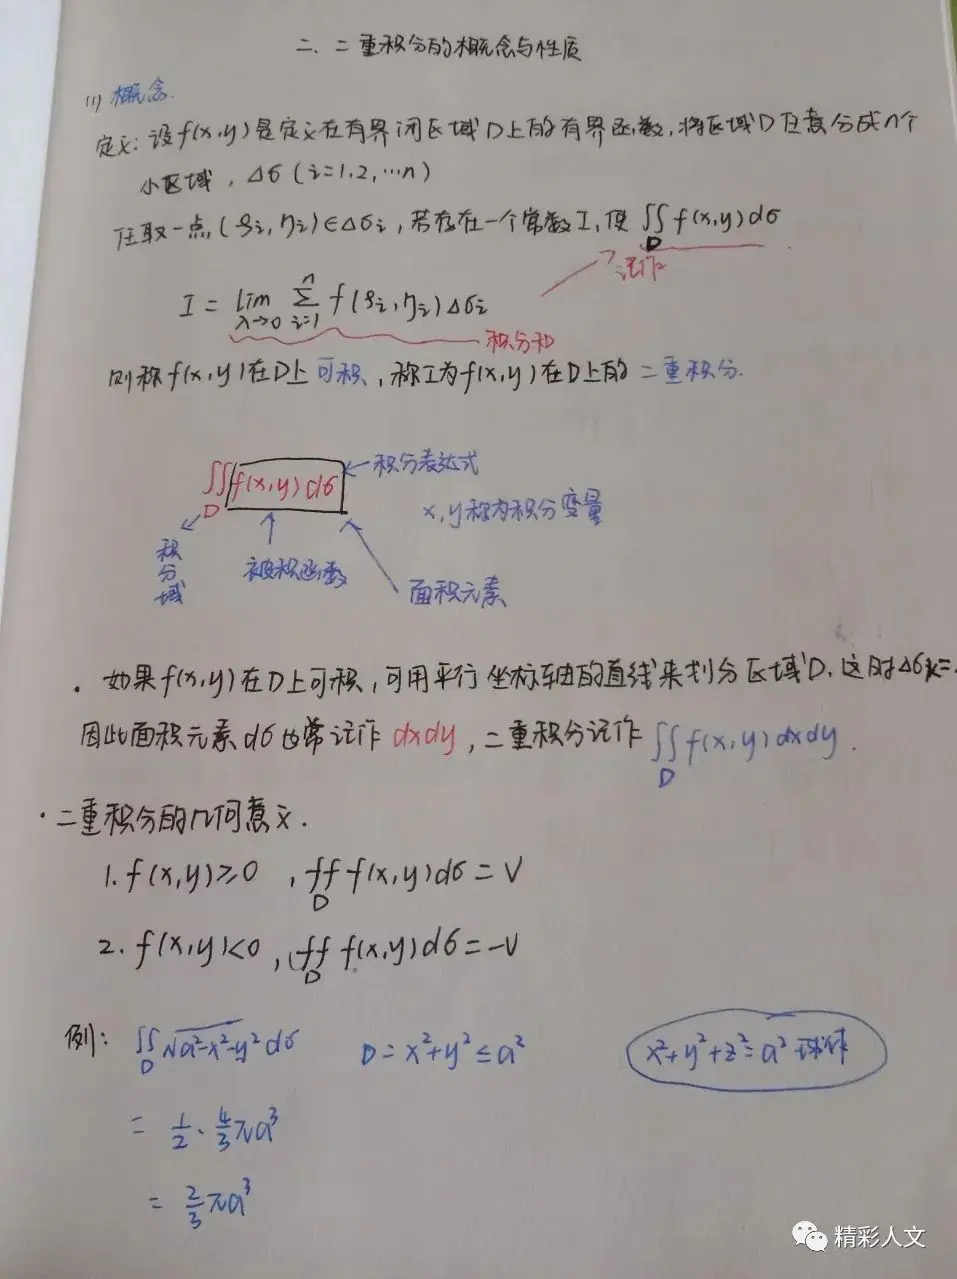 二、二重积分的概念与性质
(1) 概念.
定义: 设f(x,y)是定义在有界闭区域D上的有界函数,将区域D任意分成n个
小区域, Δσ (i=1,2,…n)
任取一点,(ξi,ηi)∈Δσi,若存在一个常数I,使 ∬_D f(x,y)dσ
记作
I = lim_{λ→0} Σ_{i=1}^{n} f(ξi,ηi)Δσi
积分和
则称f(x,y)在D上可积,称I为f(x,y)在D上的二重积分.
∬_D f(x,y)dσ ←积分表达式
x,y称为积分变量
积分域
被积函数
面积元素
· 如果f(x,y)在D上可积,可用平行坐标轴的直线来划分区域D.这时Δσk=
因此面积元素dσ也常记作dxdy,二重积分记作∬_D f(x,y)dxdy.
· 二重积分的几何意义.
1. f(x,y)≥0 , ∬_D f(x,y)dσ = V
2. f(x,y)<0 , ∬_D f(x,y)dσ = -V
例: ∬_D √a²-x²-y² dσ D = x²+y² ≤ a² x²+y²+z²=a² 球体
= 1/2 · 4/3 πa³
= 2/3 πa³
精彩人文